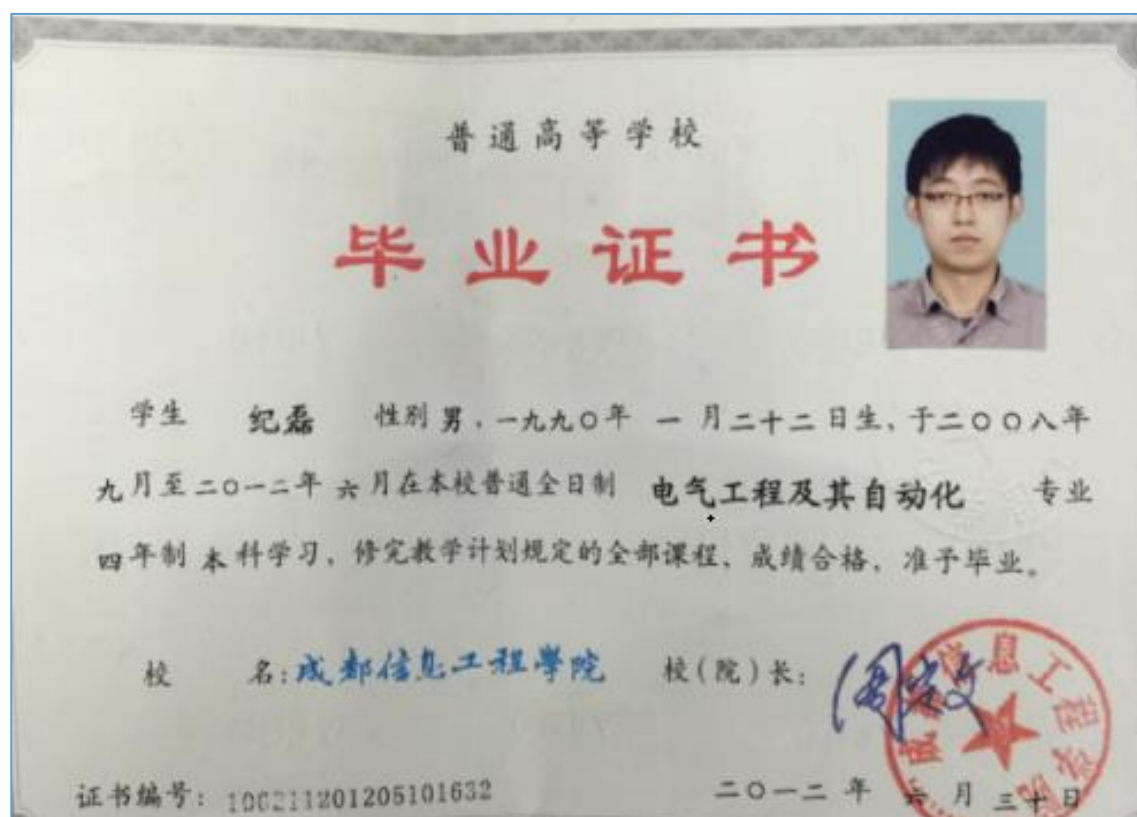 普通高等学校
毕业证书
学生 纪磊 性别 男，一九九〇年 一 月二十二日生，于二〇〇八年
九月至二〇一二年 六月在本校普通全日制 电气工程及其自动化 专业
四年制 本科学习，修完教学计划规定的全部课程，成绩合格，准予毕业。
校 名：成都信息工程學院 校（院）长：
证书编号： 二〇一二 年 六 月 三十日